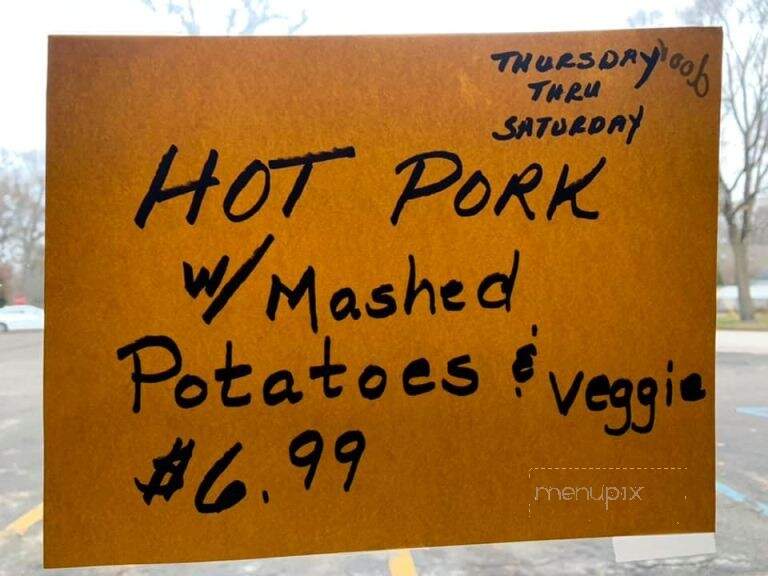 THURSDAY
THRU
SATURDAY
HOT PORK
w/ Mashed
Potatoes & veggie
$6.99
menupix